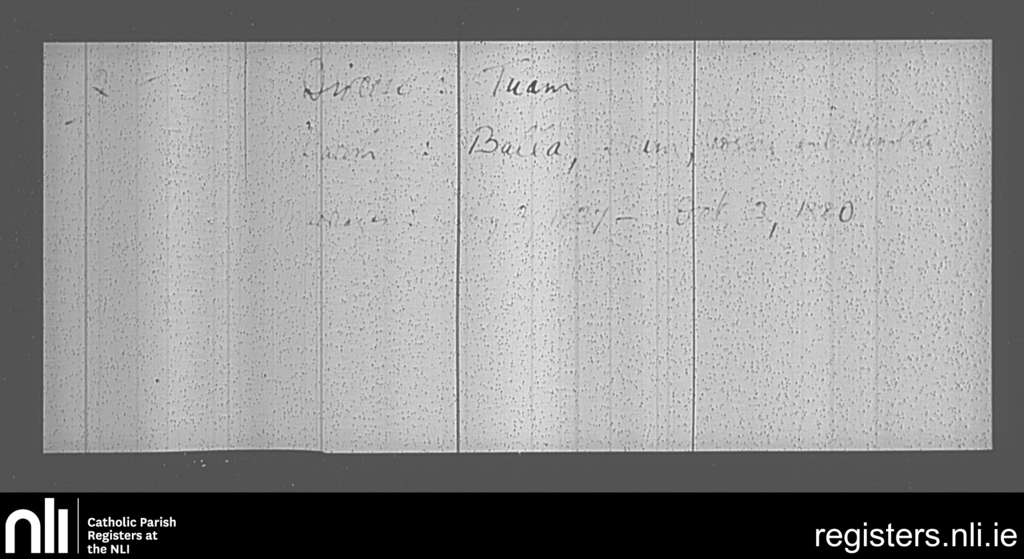 2
Diocese : Tuam
Parish : Balla, Drum, and
Marriages : 3, 1837 — Oct 3, 1880
nli
Catholic Parish
Registers at
the NLI
registers.nli.ie